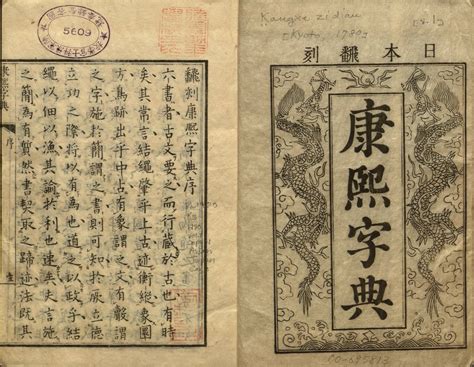 日本翻刻
康熙字典
飜刻康熙字典序
六書者古文要之而行藏於古也有時
矣其常言結繩肇乎上古迹衡縱象圖
方焉跡出乎中古有象謂之文有聲謂
之字施於簡謂之書則可知於承立德
立功之際將以有為也道之以政乎結
繩以佃以漁其論於利也速矣史言施
之簡為有然書契取之歸迹法既其
序
5609